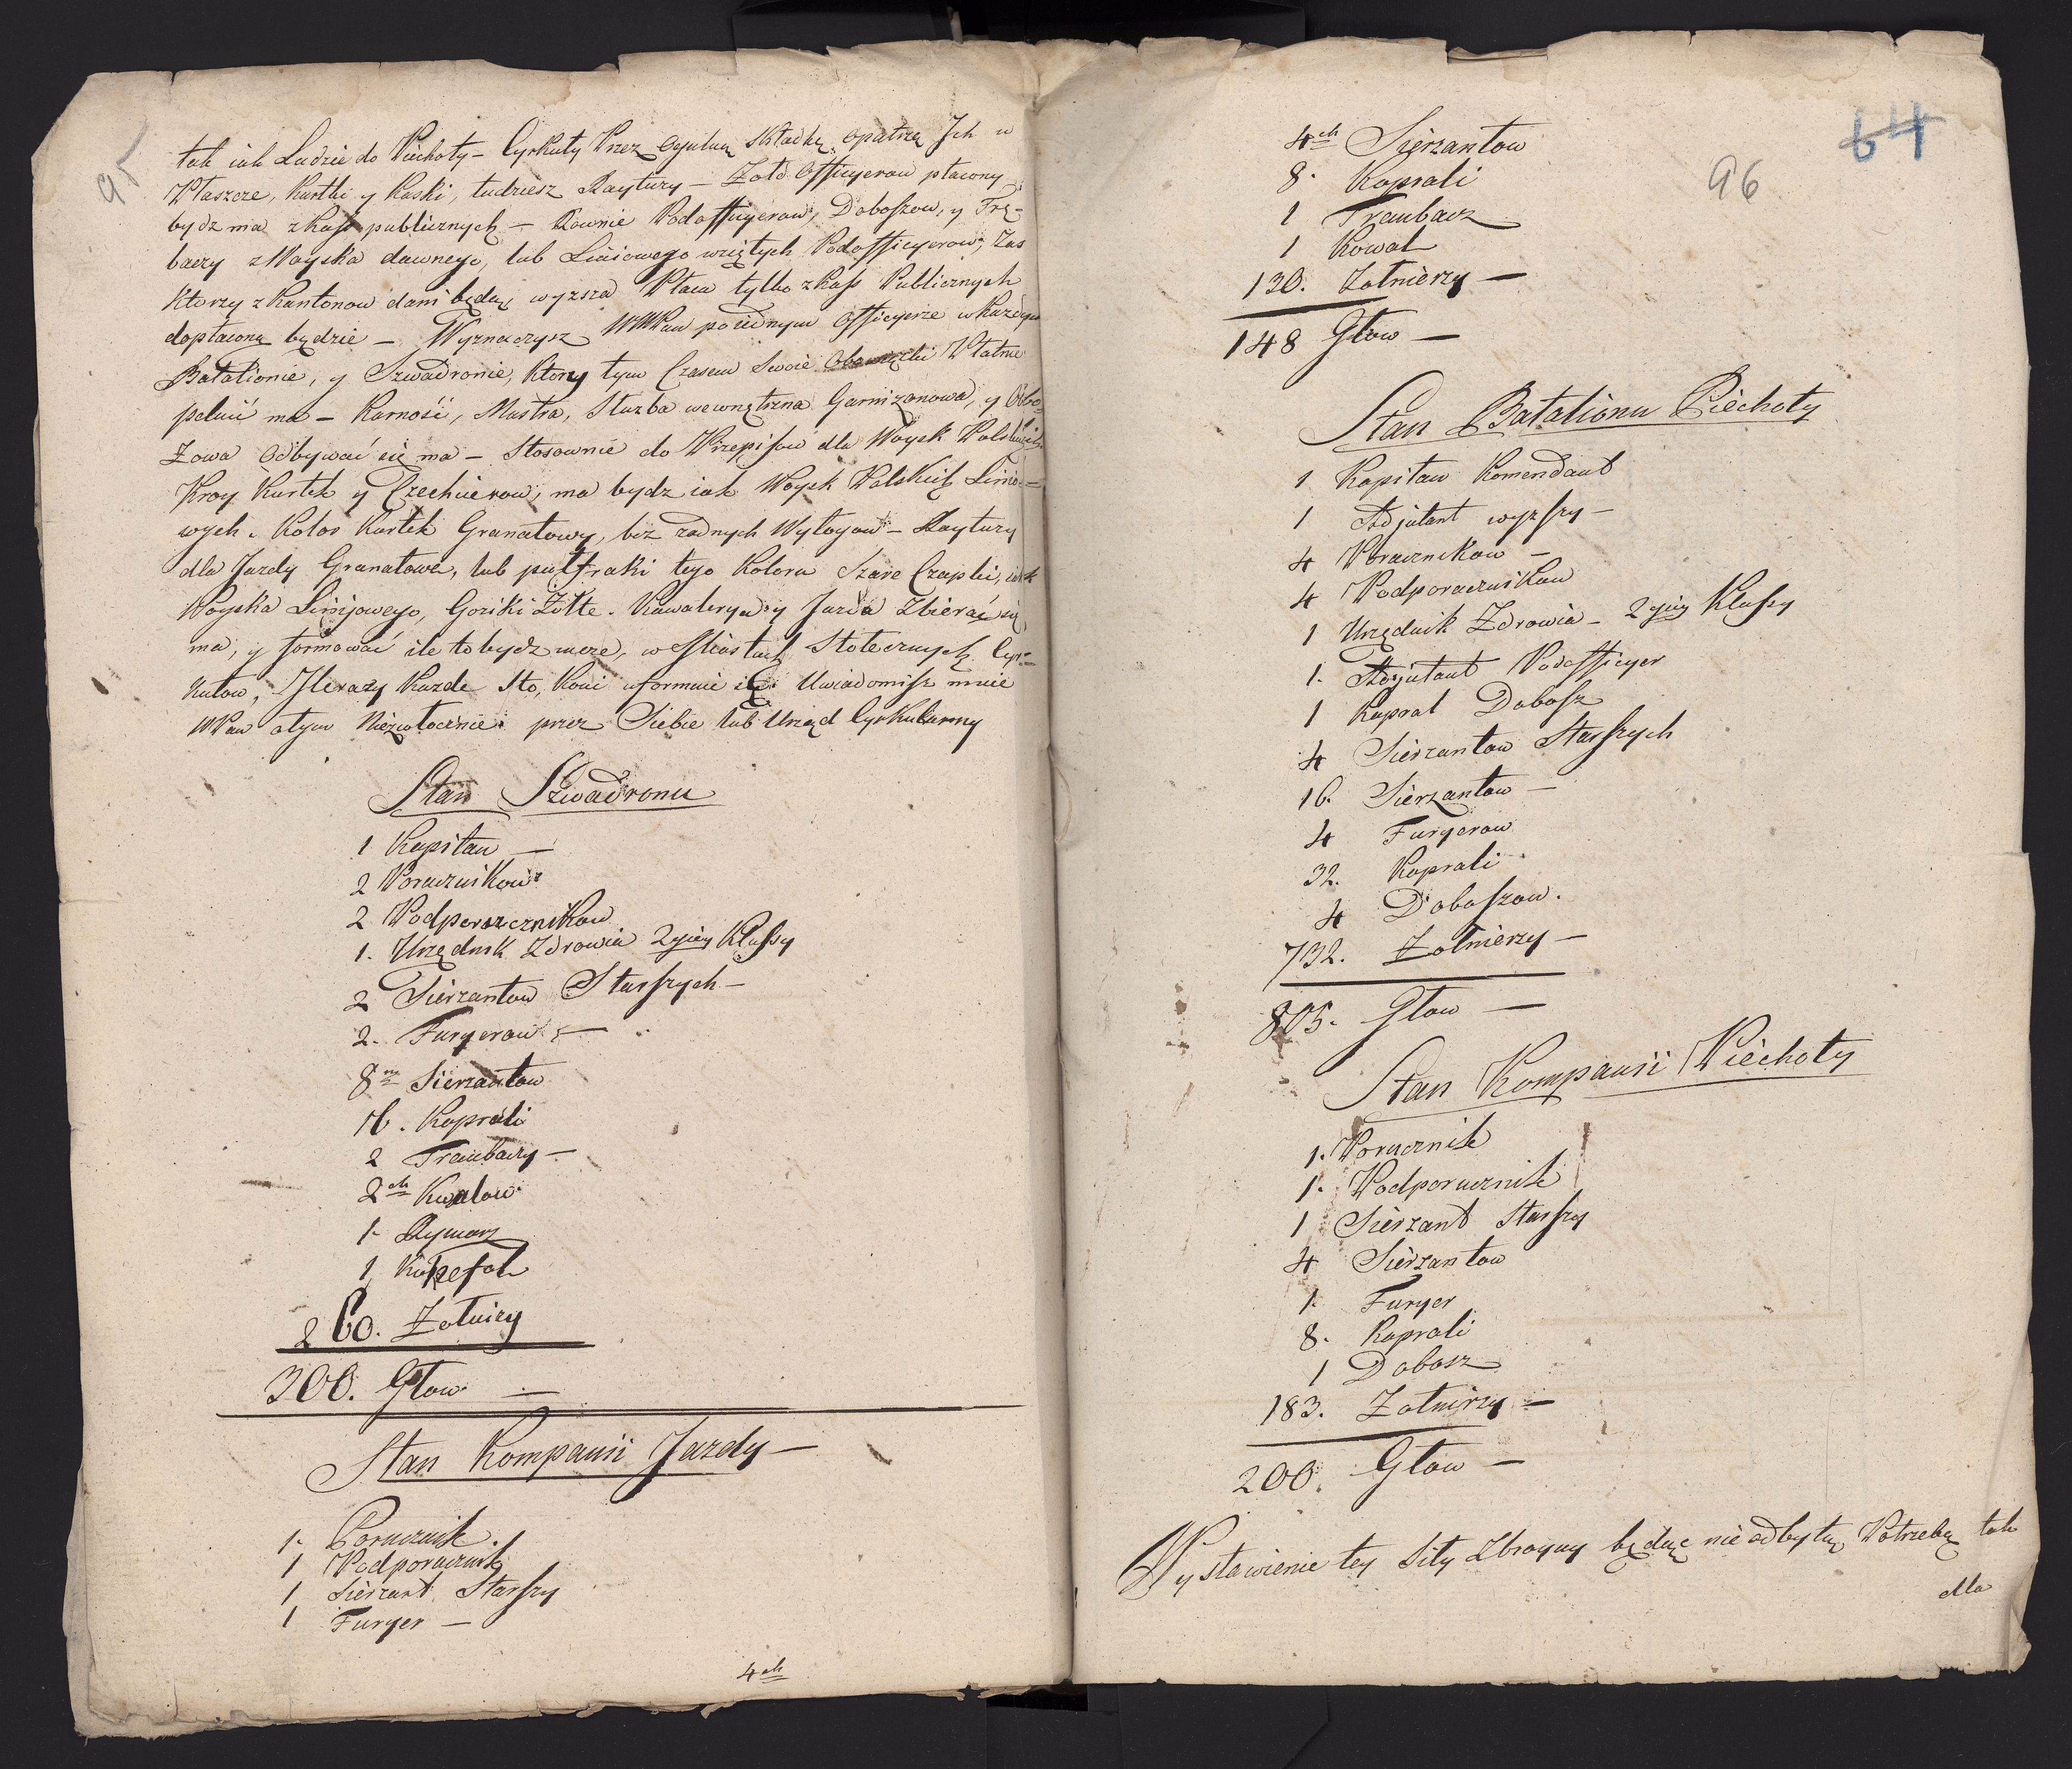 95
tak iak Ludzie do Piechoty – Cyrkuły Przez ogulną Składkę, opatrzą Jch w
Płaszcze, Kurtki y Kaski, tudziesz Raytuzy – Żołd Officyerow płacony
bydz ma z Kass publicznych – Rownie Podofficyerow, Doboszow, y Trę-
baczy z Woyska dawnego, lub Liniowego wziętych Podofficyerow, Zas
Ktorzy z Kantonow dani będą, wyzsza Płaca tylko z Kass Publicznych
dopłaconą będzie – Wyznaczysz WWPan po iednym Officyerze w Kazdym
Batalionie, y Szwadronie, Ktory tym Czasem Swoie Obowiązki Płatnie
pełnić ma – Karność, Mustra, Służba wewnętrzna Garnizonowa, y Obo-
Zowa odbywać się ma – Stosownie do Przepisow dla Woysk Polskich
Kroy Kurtek y Czechierow, ma bydz iak Woysk Polskich Linio-
wych. Kolor Kurtek Granatowy, bez żadnych Wyłogow – Raytuzy
dla Jazdy Granatowe, lub pułfraki tego Koloru Szare Czapki, iak
Woyska Linijowego, Guziki Żółte. Kawalerya y Jazda Zbierać się
ma, y formować ile to bydz może, w Miastach Stołecznych Cyr-
kułow, Jle razy Kazde Sto, Koni uformuie się. Uwiadomisz mnie
WPan o tym Niezwłocznie przez Siebie lub Urząd Cyrkularny
Stan Szwadronu
1 Kapitan –
2 Porucznikow
2 Podporucznikow
1. Urzędnik Zdrowia 2giey Klassy
2 Sierzantow Starszych –
2. Furyerow –
8m Sierzantow
16. Kaprali
2 Trembaczy –
2ch Kowalow
1. Rymarz
1 Konował
260. Żołnierzy
300. Głow –
Stan Kompanii Jazdy –
1. Porucznik.
1 Podporucznik
1 Sierzant Starszy
1 Furyer –
4ch
64
96
4ch Sierzantow
8. Kaprali
1 Traubacz
1 Kowal
130. Żołnierzy –
148 Głow –
Stan Batalionu Piechoty
1 Kapitan Komendant
1 Adjutant wyzszy –
4 Porucznikow –
4 Podporucznikow
1 Urzędnik Zdrowia – 2giey Klassy
1. Adjutant Podofficyer
1 Kapral Dobosz
4 Sierzantow Starszych
16. Sierzantow –
4 Furyerow
32. Kaprali
4 Doboszow.
732. Żołnierzy –
805. Głow –
Stan Kompanii Piechoty
1. Porucznik
1. Podporucznik
1 Sierzant Starszy
4 Sierzantow
1. Furyer
8. Kaprali
1 Dobosz
183. Żołnierzy –
200. Głow –
Wystawienie tey Siły Zbroyney będąc nieodbytą Potrzebą tak
dla